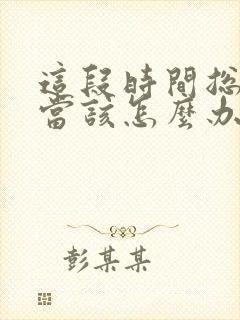 這段時間総
當該怎麼办
彭某某